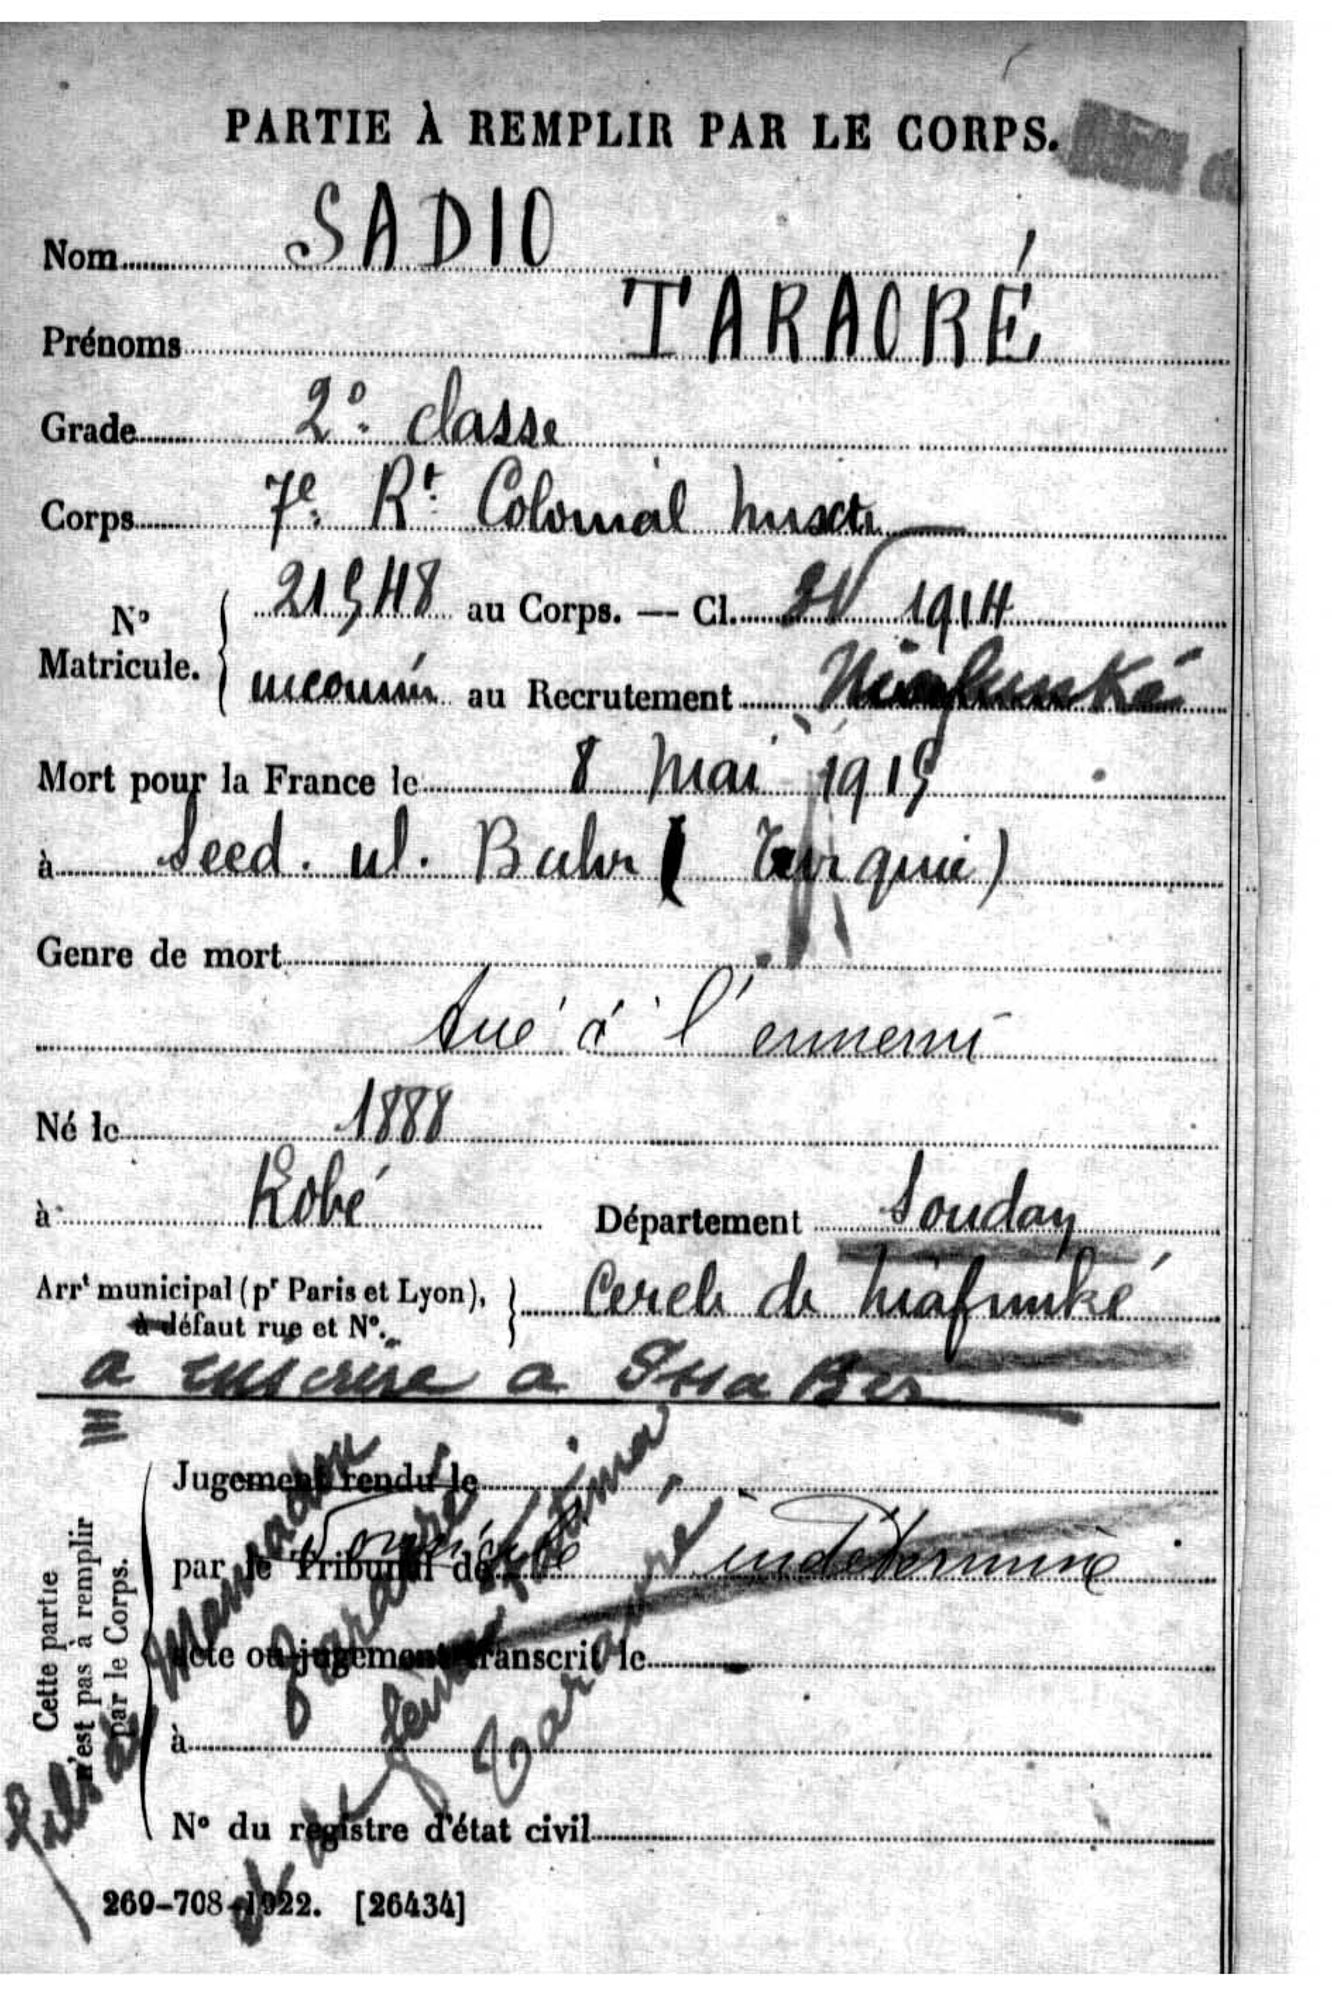 PARTIE À REMPLIR PAR LE CORPS.
Nom SADIO
Prénoms TARAORÉ
Grade 2e classe
Corps 7e Rt Colonial mixte
No Matricule. 21548 au Corps. — Cl. 1914
inconnu au Recrutement Niafunké
Mort pour la France le 8 mai 1915
à Seed. ul. Bahr (Turquie)
Genre de mort
tué à l'ennemi
Né le 1888
à Kobé Département Soudan
Arrt municipal (pr Paris et Lyon), à défaut rue et No. Cercle de Niafunké
a inscrire a Issa Ber
Jugement rendu le
par le Tribunal de
Domicile indéterminé
acte ou jugement transcrit le
à
No du registre d'état civil
Cette partie
n'est pas à remplir
par le Corps.
fils de Mamadou
Taraoré
et de Fatima
Taraoré
269-708-1922. [26434]